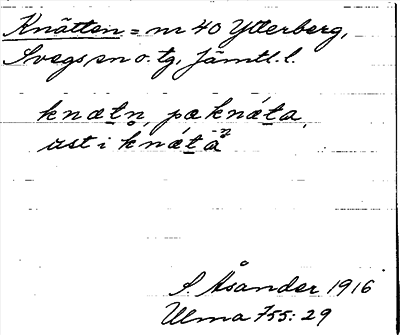 Knätten = nr 40 Ytterberg,
Svegs sn o. tg, Jämtl. l.
knætn̥, pæ knǽta,
ust i knǽtaⁿ
S. Åsander 1916
Ulma 755:29